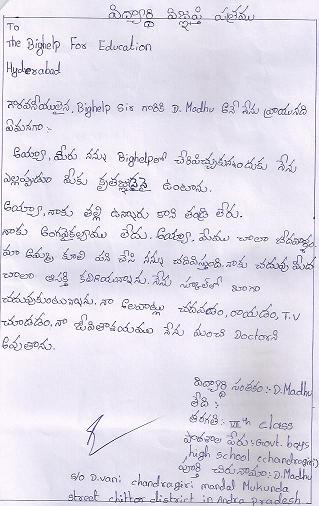 విద్యార్థి విజ్ఞప్తి పత్రము
To
The Bighelp For Education
Hyderabad
గౌరవనీయులైన, Bighelp Sir గారికి D. Madhu అనే నేను వ్రాయునది
ఏమనగా:-
అయ్యా, మీరు నన్ను Bighelpలో చేర్పించుకున్నందుకు నేను
ఎల్లప్పుడూ మీకు కృతజ్ఞుడనై ఉంటాను.
అయ్యా, నాకు తల్లి ఉన్నారు కాని తండ్రి లేరు.
నాకు అంగవైకల్యము లేదు. అయ్యా, మేము చాలా బీదవాళ్ళం.
మా అమ్మ కూలి పని చేసి నన్ను చదివిస్తోంది. నాకు చదువు మీద
చాలా ఆసక్తి కలిగియున్నాను. నేను స్కూల్‌లో బాగా
చదువుకుంటున్నాను. నా అలవాట్లు చదవడం, రాయడం, T.V
చూడడం. నా జీవితాశయము నేను మంచి Doctorని
అవుతాను.
విద్యార్థి సంతకం:- D.Madhu
తేది:
తరగతి: VIIth class
పాఠశాల పేరు: Govt. boys
high school (chandragiri)
పూర్తి చిరునామా: D.Madhu
S/O D.vani chandragiri mandal Mukunda
street chittor district in Andra pradesh